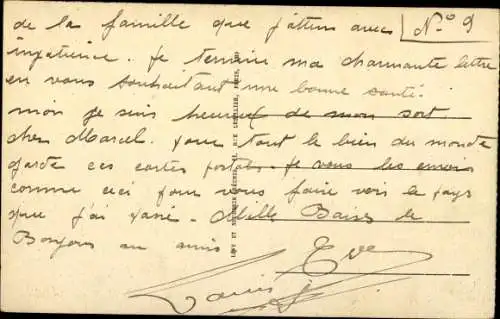 de la famille que j'attens avec
N° 9
impatience. Je termine ma charmante lettre
en vous souhaitant une bonne santé.
moi je suis heureux de mon sort
cher Marcel. pour tout le bien du monde
garde ces cartes postales je vous les envois
comme ceci pour vous faire voir le pays
que j'ai passé. Mille Baisers de
Bonjour au amis
Louis